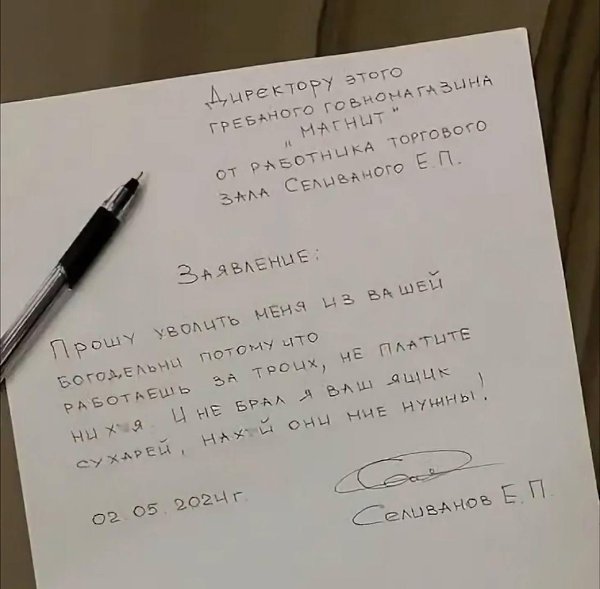 Директору этого
гребаного говномагазина
"Магнит"
от работника торгового
зала Селиваного Е.П.
Заявление:
Прошу уволить меня из вашей
богодельни потому что
работаешь за троих, не платите
ни х я. И не брал я ваш ящик
сухарей, нах й они мне нужны!
02.05.2024г.
Селиванов Е.П.